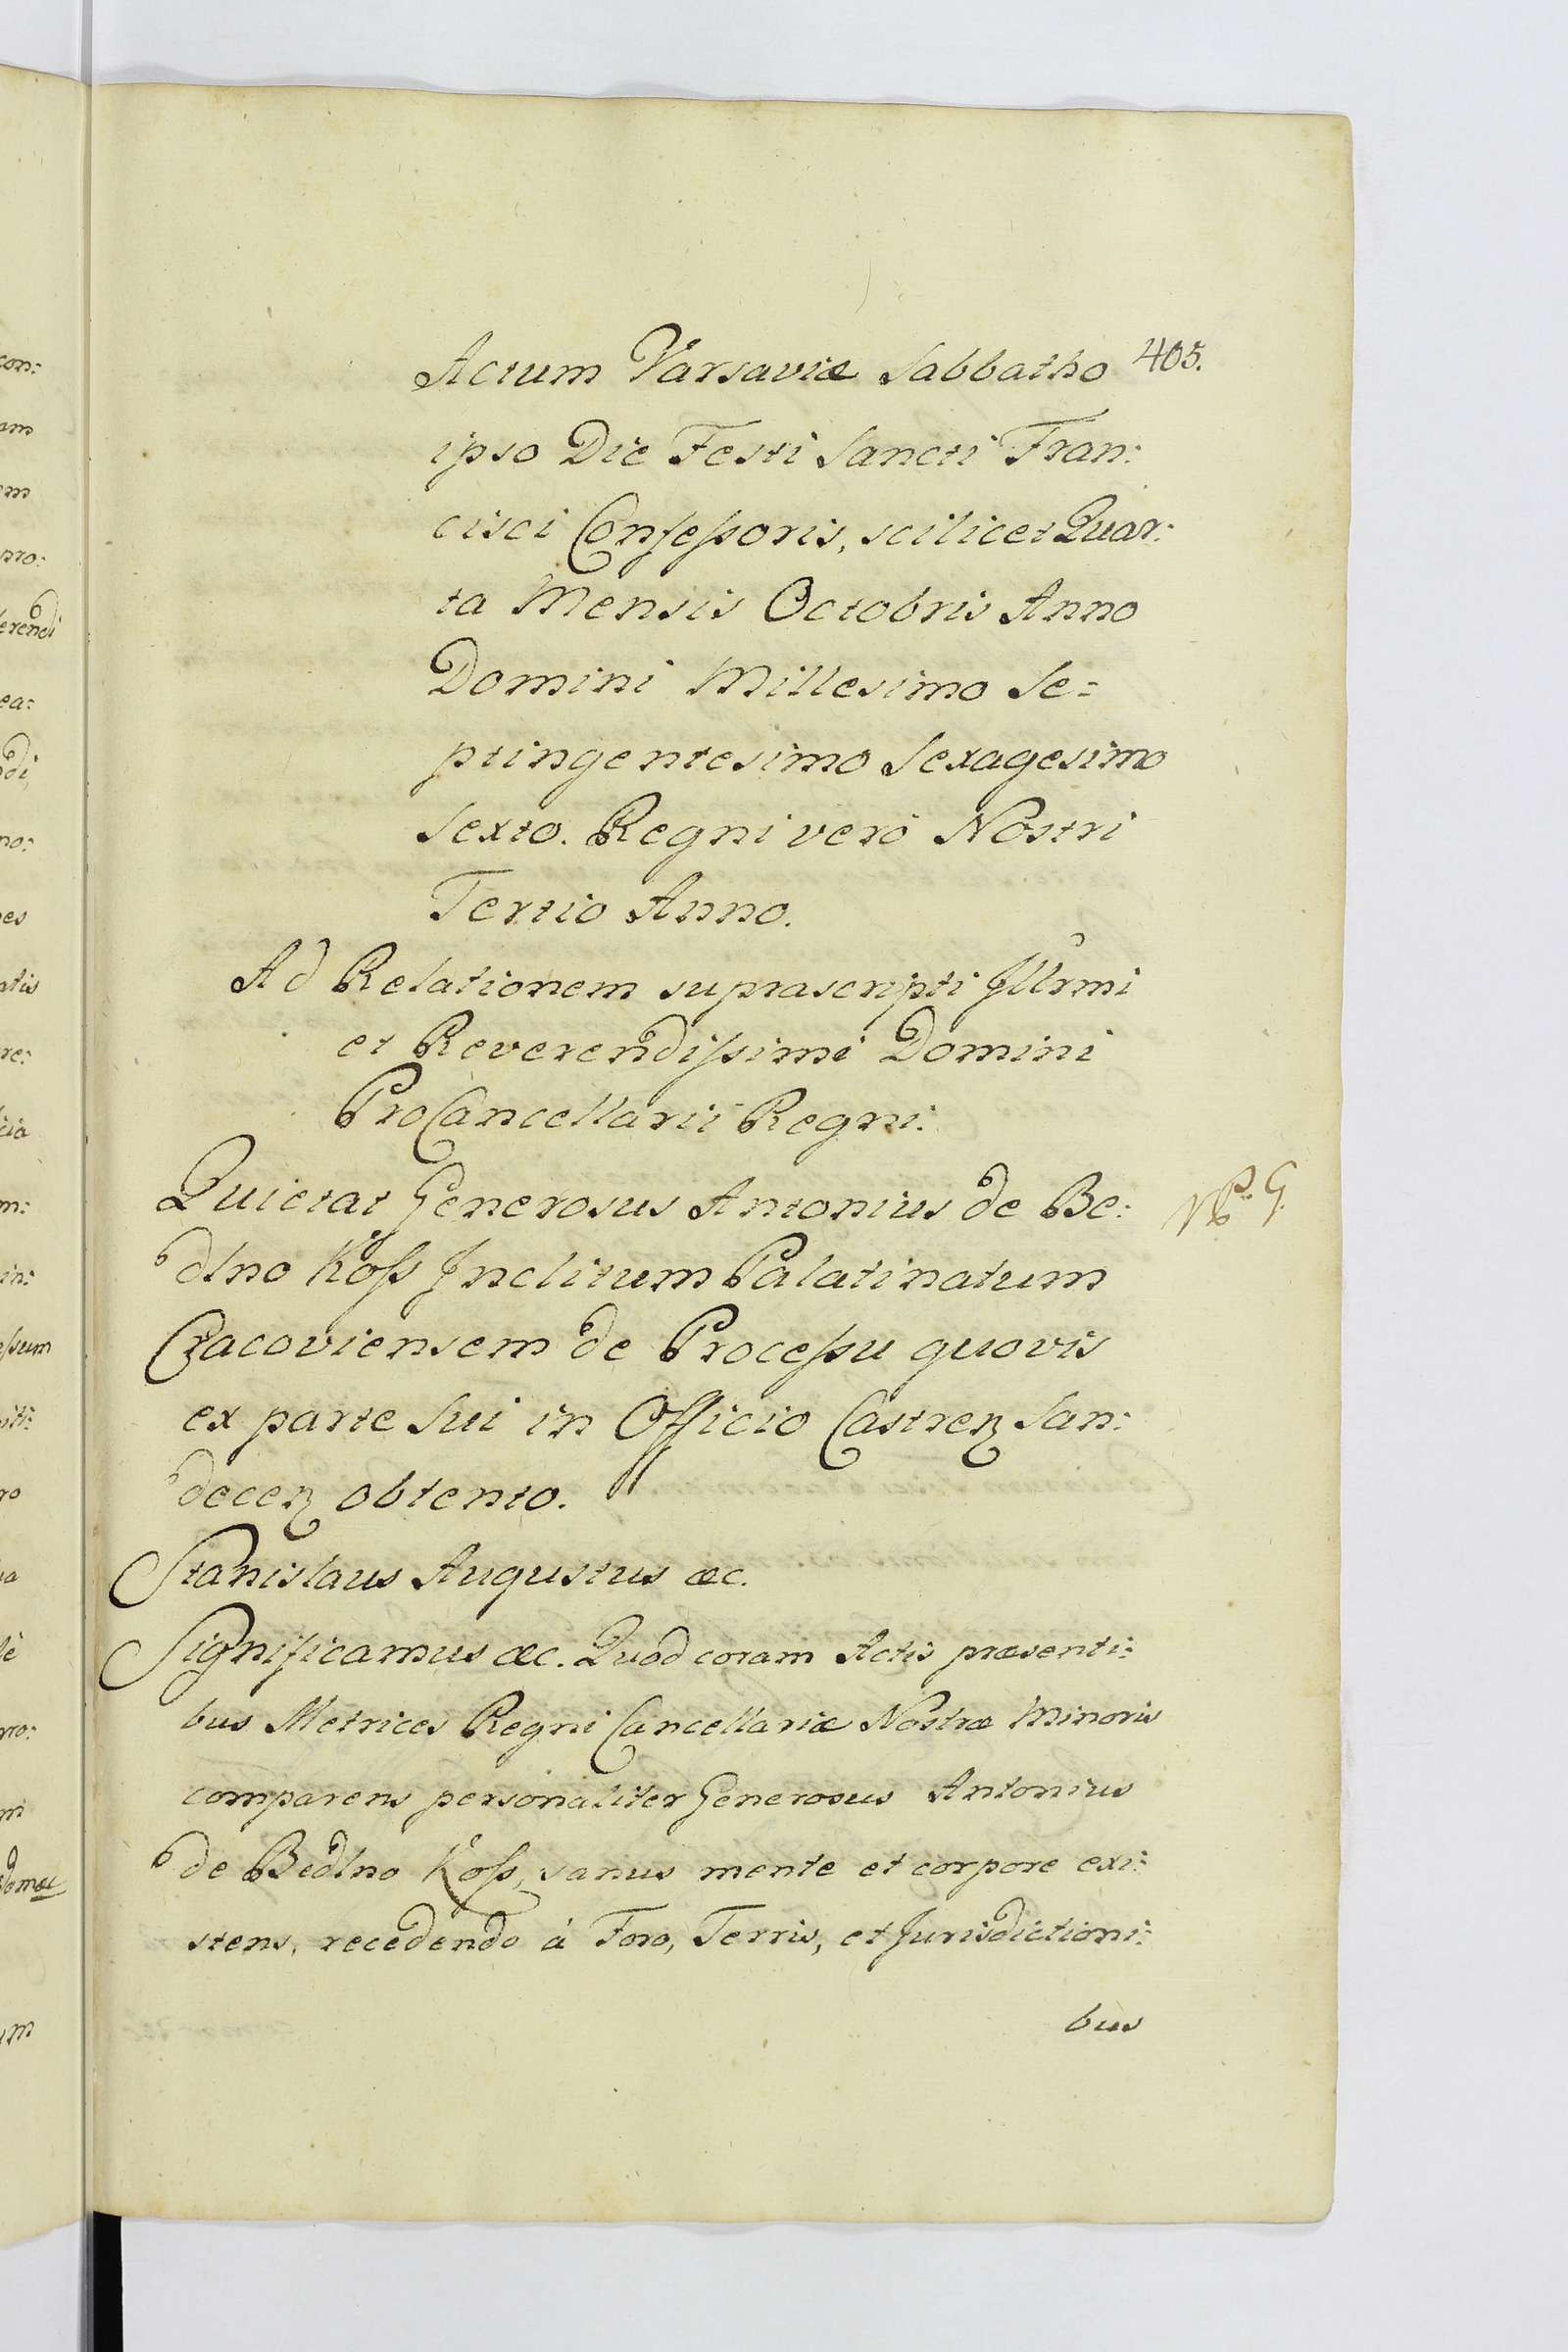 405.
Actum Varsaviæ Sabbatho
ipso Die Festi Sancti Fran:
cisci Confessoris, scilicet Quar:
ta Mensis Octobris Anno
Domini Millesimo Se=
ptingentesimo Sexagesimo
Sexto. Regni verò Nostri
Tertio Anno.
Ad Relationem suprascripti Jllrmi
et Reverendissimi Domini
ProCancellarii Regni.
Quietat Generosus Antonius de Be:
dlno Koss Jnclitum Palatinatum
Cracoviensem de Processu quovis
ex parte Sui in Officio Castren San:
decen obtento.
Stanislaus Augustus &c.
Significamus &c. Quod coram Actis præsenti:
bus Metrices Regni Cancellariæ Nostræ Minoris
comparens personaliter Generosus Antonius
de Bedlno Koss, sanus mente et corpore exi:
stens, recedendo à Foro, Terris, et Jurisdictioni:
bus